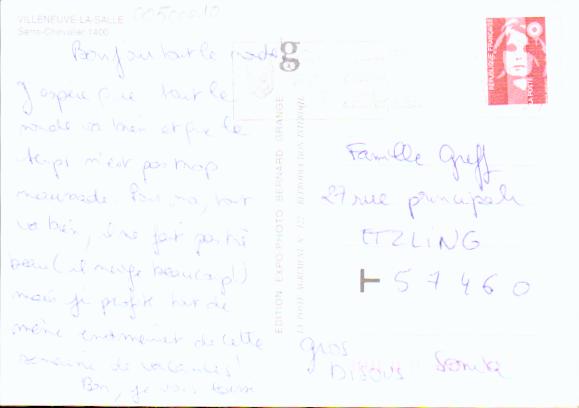 VILLENEUVE-LA-SALLE
Serre-Chevalier 1400
Bonjour tout le monde
J'espère que tout le
monde va bien et que le
temps n'est pas trop
mauvais. Pour moi, tout
va bien, il ne fait pas très
beau (il neige beaucoup!)
mais je profite tout de
même énormément de cette
semaine de vacances!
Bon, je vous laisse
g
EDITION EXPO-PHOTO BERNARD GRANGE
REPUBLIQUE FRANÇAISE
LA POSTE
Famille Greff
27 rue principale
ETZLING
57460
gros
Bisous